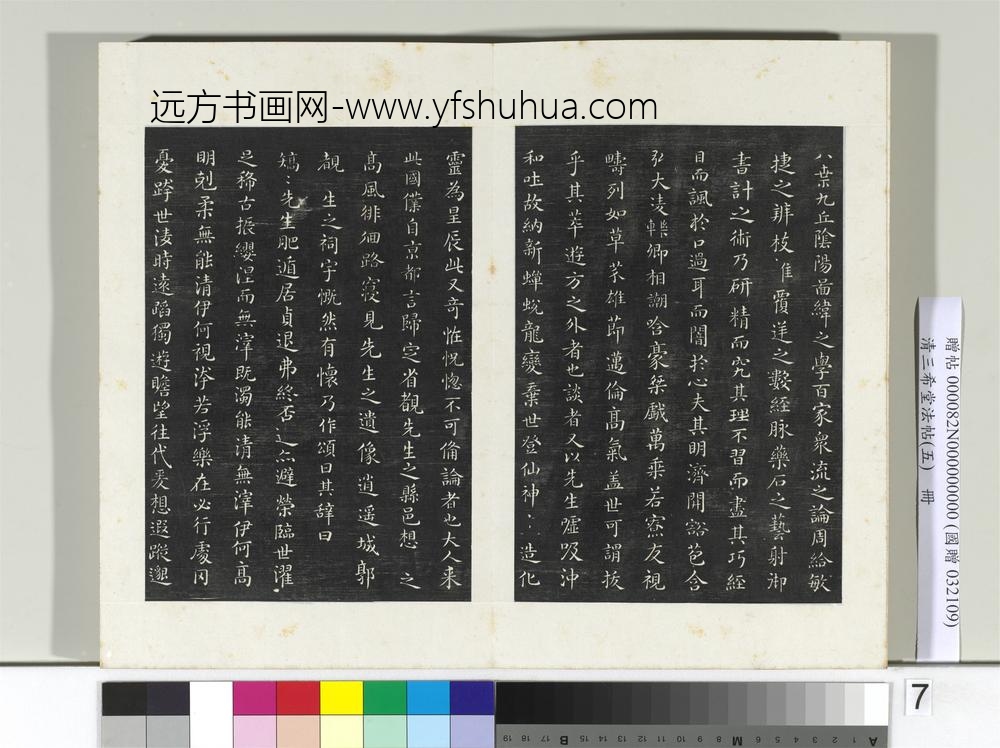 远方书画网-www.yfshuhua.com
八㮚九丘陰陽啚緯之學百家衆流之論周給敏
捷之辨枝准覆逆之數經脉藥石之藝射御
書計之術乃研精而究其理不習而盡其巧經
目而諷於口過耳而闇於心夫其明濟開豁苞含
弘大凌轢卿相謿哈豪桀戲萬乗若寮友視
疇列如草芥雄節邁倫髙氣盖世可謂拔
乎其萃遊方之外者也談者又以先生噓吸沖
和吐故納新蟬蛻龍變棄世登仙神〻造化
靈為星辰此又竒恠怳惚不可俻論者也大人来
此國僕自京都言歸定省覩先生之縣邑想 之
髙風徘徊路寢見先生之遺像逍遥城郭
覩 生之祠宇慨然有懷乃作頌曰其辭曰
矯〻先生肥遁居貞退弗終否進亦避榮臨世濯
足稀古振纓涅而無滓既濁能清無滓伊何髙
明剋柔無能清伊何視洿若浮樂在必行處冈
憂跨世淩時遠蹈獨遊瞻望往代爰想遐蹤邈
贈帖 000082N000000000 (國贈 032109)
清三希堂法帖(五) 冊
7
19 18 17 B 15 14 13 12 11 10 9 8 M 6 5 4 3 2 1 A